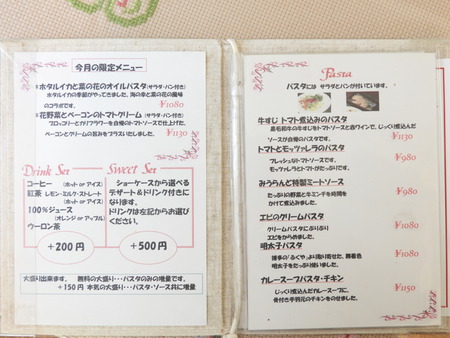 今月の限定メニュー
☆ホタルイカと菜の花のオイルパスタ(サラダ・パン付き)
ホタルイカの季節がやってきました。海の幸と菜の花の風味
のコラボです。 ¥1080
☆花野菜とベーコンのトマトクリーム(サラダ・パン付き)
ブロッコリーとカリフラワーを自慢のトマトソースで仕上げた、
ベーコンとクリームの旨みをプラスいたしました。
¥1130
Drink Set
コーヒー
(ホット or アイス)
紅茶 レモン・ミルク・ストレート
(ホット or アイス)
100%ジュース
(オレンジ or アップル)
ウーロン茶
+200円
Sweet Set
ショーケースから選べる
デザート&ドリンク付きに
なります。
ドリンクは左記からお選び
ください。
+500円
大盛り出来ます。 無料の大盛り・・・パスタのみの増量です。
+150円 本気の大盛り・・・パスタ・ソース共に増量
Pasta
パスタには サラダとパンが付いています。
牛すじ トマト煮込みのパスタ
黒毛和牛の牛すじをトマトソースと赤ワインで、じっくり煮込んだ
ソースが自慢のパスタです。 ¥1130
トマトとモッツァレラのパスタ
フレッシュなトマトソースです。
モッツァレラとトマトがたっぷりです。 ¥980
みうらんど特製ミートソース
たっぷりの野菜と牛ミンチを時間を
かけて煮込みました。 ¥980
エビのクリームパスタ
クリームパスタにぷりぷり
エビをからめました。 ¥1080
明太子パスタ
博多の「ふくや」より取り寄せた、無着色
明太子をたっぷり使いました。 ¥1080
カレースープパスタ・チキン
じっくり煮込んだカレースープに、
骨付き手羽元のチキンをのせました。 ¥1150